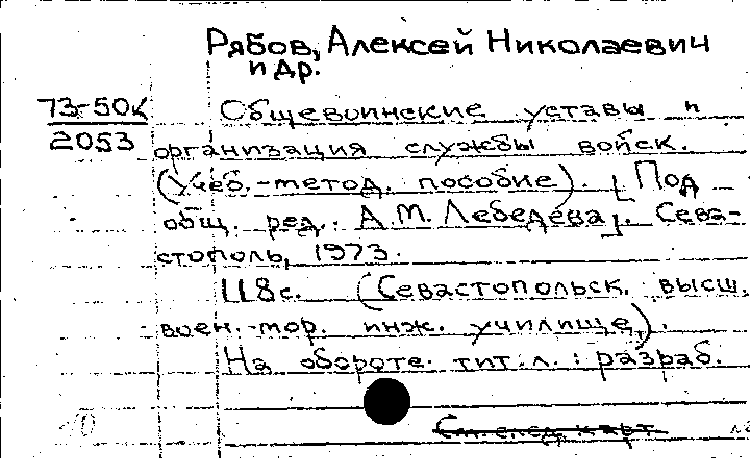 Рябов, Алексей Николаевич
и др.
73-50к
2053
Общевоинские уставы и
организация службы войск.
(Учеб.-метод. пособие). [Под
общ. ред. А.М. Лебедева]. Сева-
стополь, 1973.
118с. (Севастопольск. высш.
воен.-мор. инж. училище).
На обороте тит. л.: разраб.
См. след. карт.